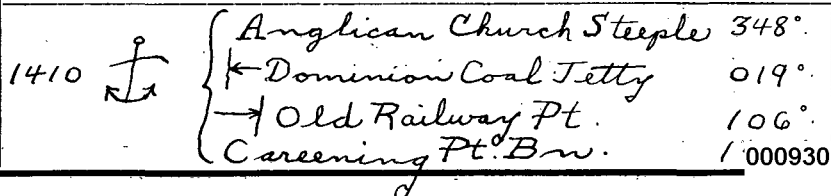 Anglican Church Steeple 348°.
1410 Dominion Coal Jetty 019°.
Old Railway Pt. 106°.
Careening Pt. Bn. 1
000930